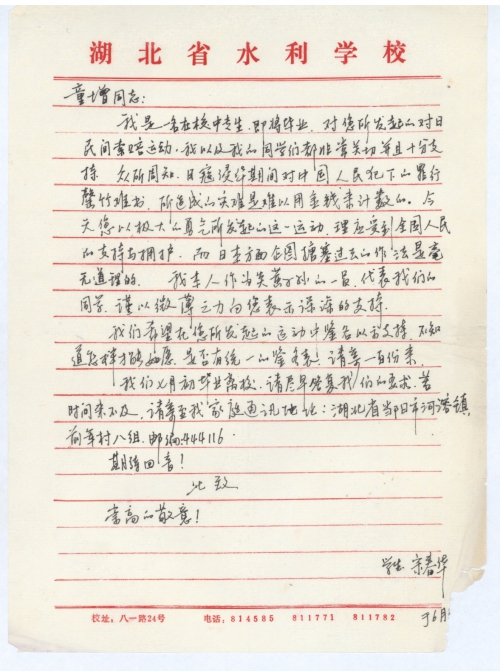 湖北省水利学校
童增同志:
我是一名在校中专生,即将毕业,对您所发起的对日
民间索赔运动,我以及我的同学们都非常关切并且十分支
持。众所周知,日寇侵华期间对中国人民犯下的罪行
罄竹难书,所造成的灾难是难以用金钱来计数的。今
天您以极大的勇气所发起的这一运动,理应受到全国人民
的支持与拥护。而日本方面企图搪塞过去的作法是毫
无道理的。我本人作为炎黄子孙的一员,代表我们的
同学,谨以微薄之力向您表示深深的支持。
我们希望在您所发起的运动中签名以示支持,不知
道怎样才能如愿,是否有统一的签名表!请寄一份来
我们七月初毕业离校,请尽早答复我们的要求,若
时间来不及,请寄至我家庭通讯地址:湖北省当阳市河溶镇
前年村八组.邮编:444116.
期待回音!
此致
崇高的敬意!
学生 宋春华
于6月
校址:八一路24号 电话:814585 811771 811782